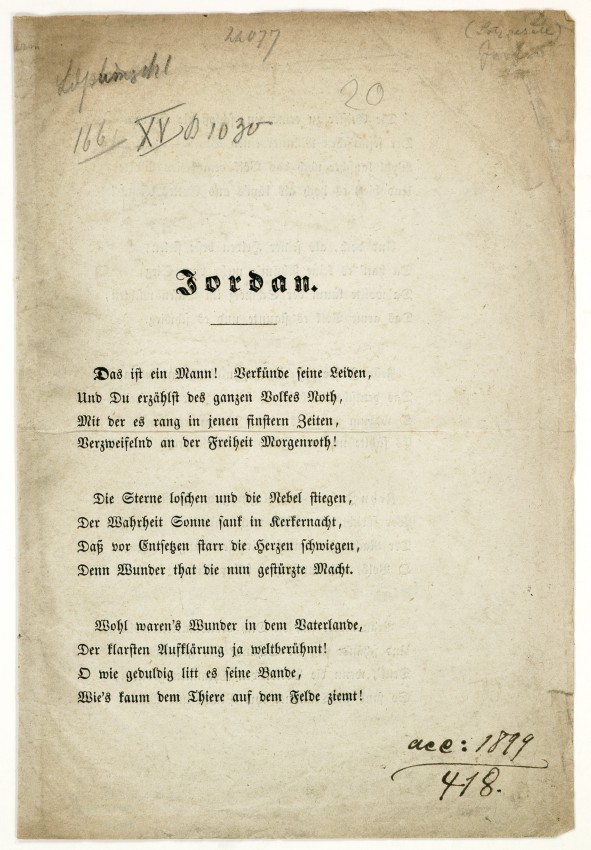 22077
20
166
XV D 1030
Jordan.
Das ist ein Mann! Verkünde seine Leiden,
Und Du erzählst des ganzen Volkes Noth,
Mit der es rang in jenen finstern Zeiten,
Verzweifelnd an der Freiheit Morgenroth!
Die Sterne loschen und die Nebel stiegen,
Der Wahrheit Sonne sank in Kerkernacht,
Daß vor Entsetzen starr die Herzen schwiegen,
Denn Wunder that die nun gestürzte Macht.
Wohl waren's Wunder in dem Vaterlande,
Der klarsten Aufklärung ja weltberühmt!
O wie geduldig litt es seine Bande,
Wie's kaum dem Thiere auf dem Felde ziemt!
acc: 1899
418.